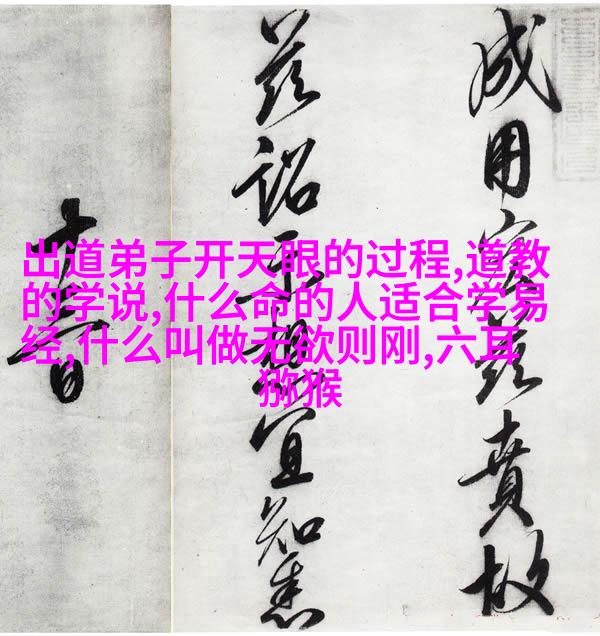 出道弟子开天眼的过程,道教
的学说,什么命的人适合学易
经,什么叫做无欲则刚,六耳
猕猴
成用茲賁故
茲詔示想宜知悉
十日